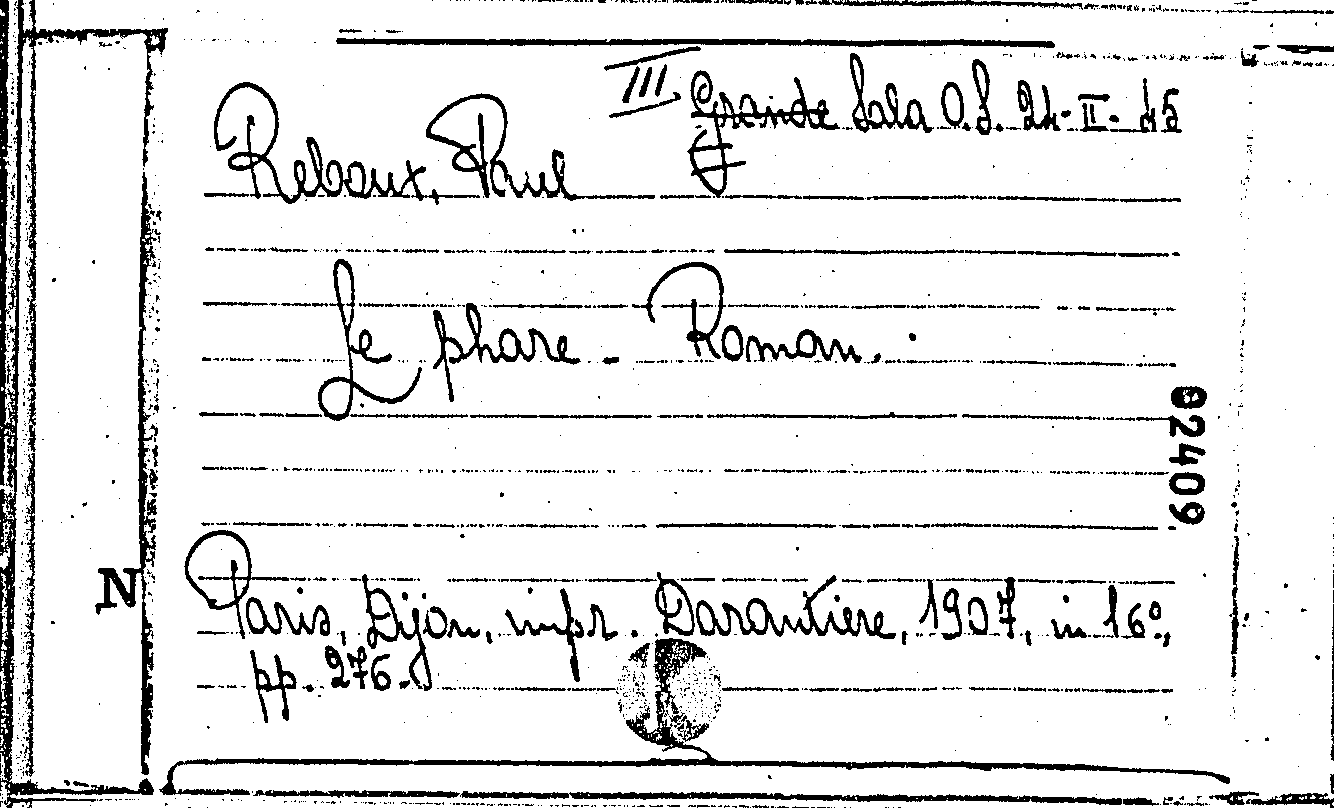 III Grande Sala O.S. 24-II-45
Reboux, Paul
Le phare - Roman.
82409
N
Paris, Dijon, impr. Darantiere, 1907, in 16º,
pp. 276.